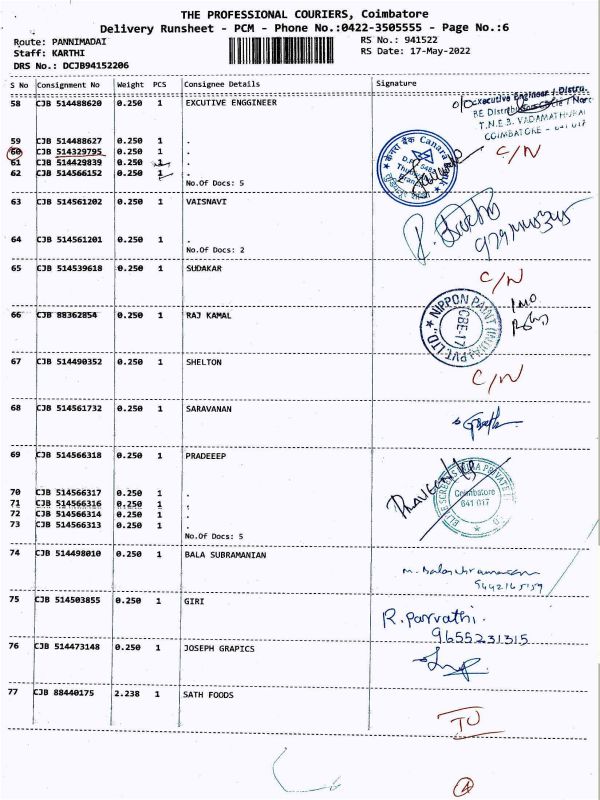 THE PROFESSIONAL COURIERS, Coimbatore
Delivery Runsheet - PCM - Phone No.:0422-3505555 - Page No.:6
Route: PANNIMADAI
RS No.: 941522
Staff: KARTHI
RS Date: 17-May-2022
DRS No.: DCJB94152206
S No Consignment No Weight PCS Consignee Details Signature
58 CJB 514488620 0.250 1 EXCUTIVE ENGGINEER
Executive Engineer / Distru.
T.N.E.B. VADAMATHURAI
COIMBATORE - 641 017
59 CJB 514488627 0.250 1 .
60 CJB 514329795 0.250 1 . C/N
61 CJB 514429839 0.250 1 .
62 CJB 514566152 0.250 1 .
केनरा बैंक Canara
No.Of Docs: 5
63 CJB 514561202 0.250 1 VAISNAVI
64 CJB 514561201 0.250 1 .
No.Of Docs: 2
65 CJB 514539618 0.250 1 SUDAKAR C/N
66 CJB 88362854 0.250 1 RAJ KAMAL
NIPPON PAINT (INDIA) PVT. LTD.,
CBE-17
67 CJB 514490352 0.250 1 SHELTON C/N
68 CJB 514561732 0.250 1 SARAVANAN
69 CJB 514566318 0.250 1 PRADEEEP
PRAVEEN
Coimbatore
641 017
70 CJB 514566317 0.250 1 .
71 CJB 514566316 0.250 1 .
72 CJB 514566314 0.250 1 .
73 CJB 514566313 0.250 1 .
No.Of Docs: 5
74 CJB 514498010 0.250 1 BALA SUBRAMANIAN
75 CJB 514503855 0.250 1 GIRI
R. Parvathi.
9655231315
76 CJB 514473148 0.250 1 JOSEPH GRAPICS
77 CJB 88440175 2.238 1 SATH FOODS
A